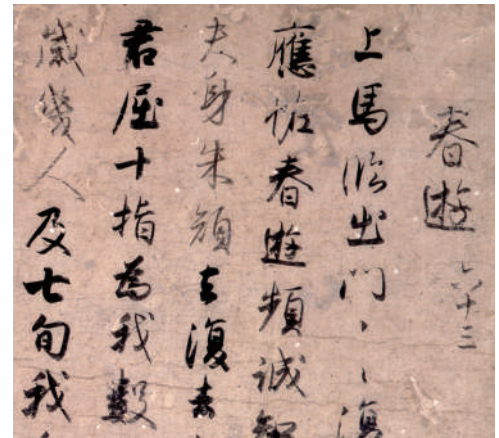 春遊 六十三
上馬臨出門、、復
應恠春遊頻誠知
夫身朱顔去復去
君屈十指為我數
歲幾人及七旬我